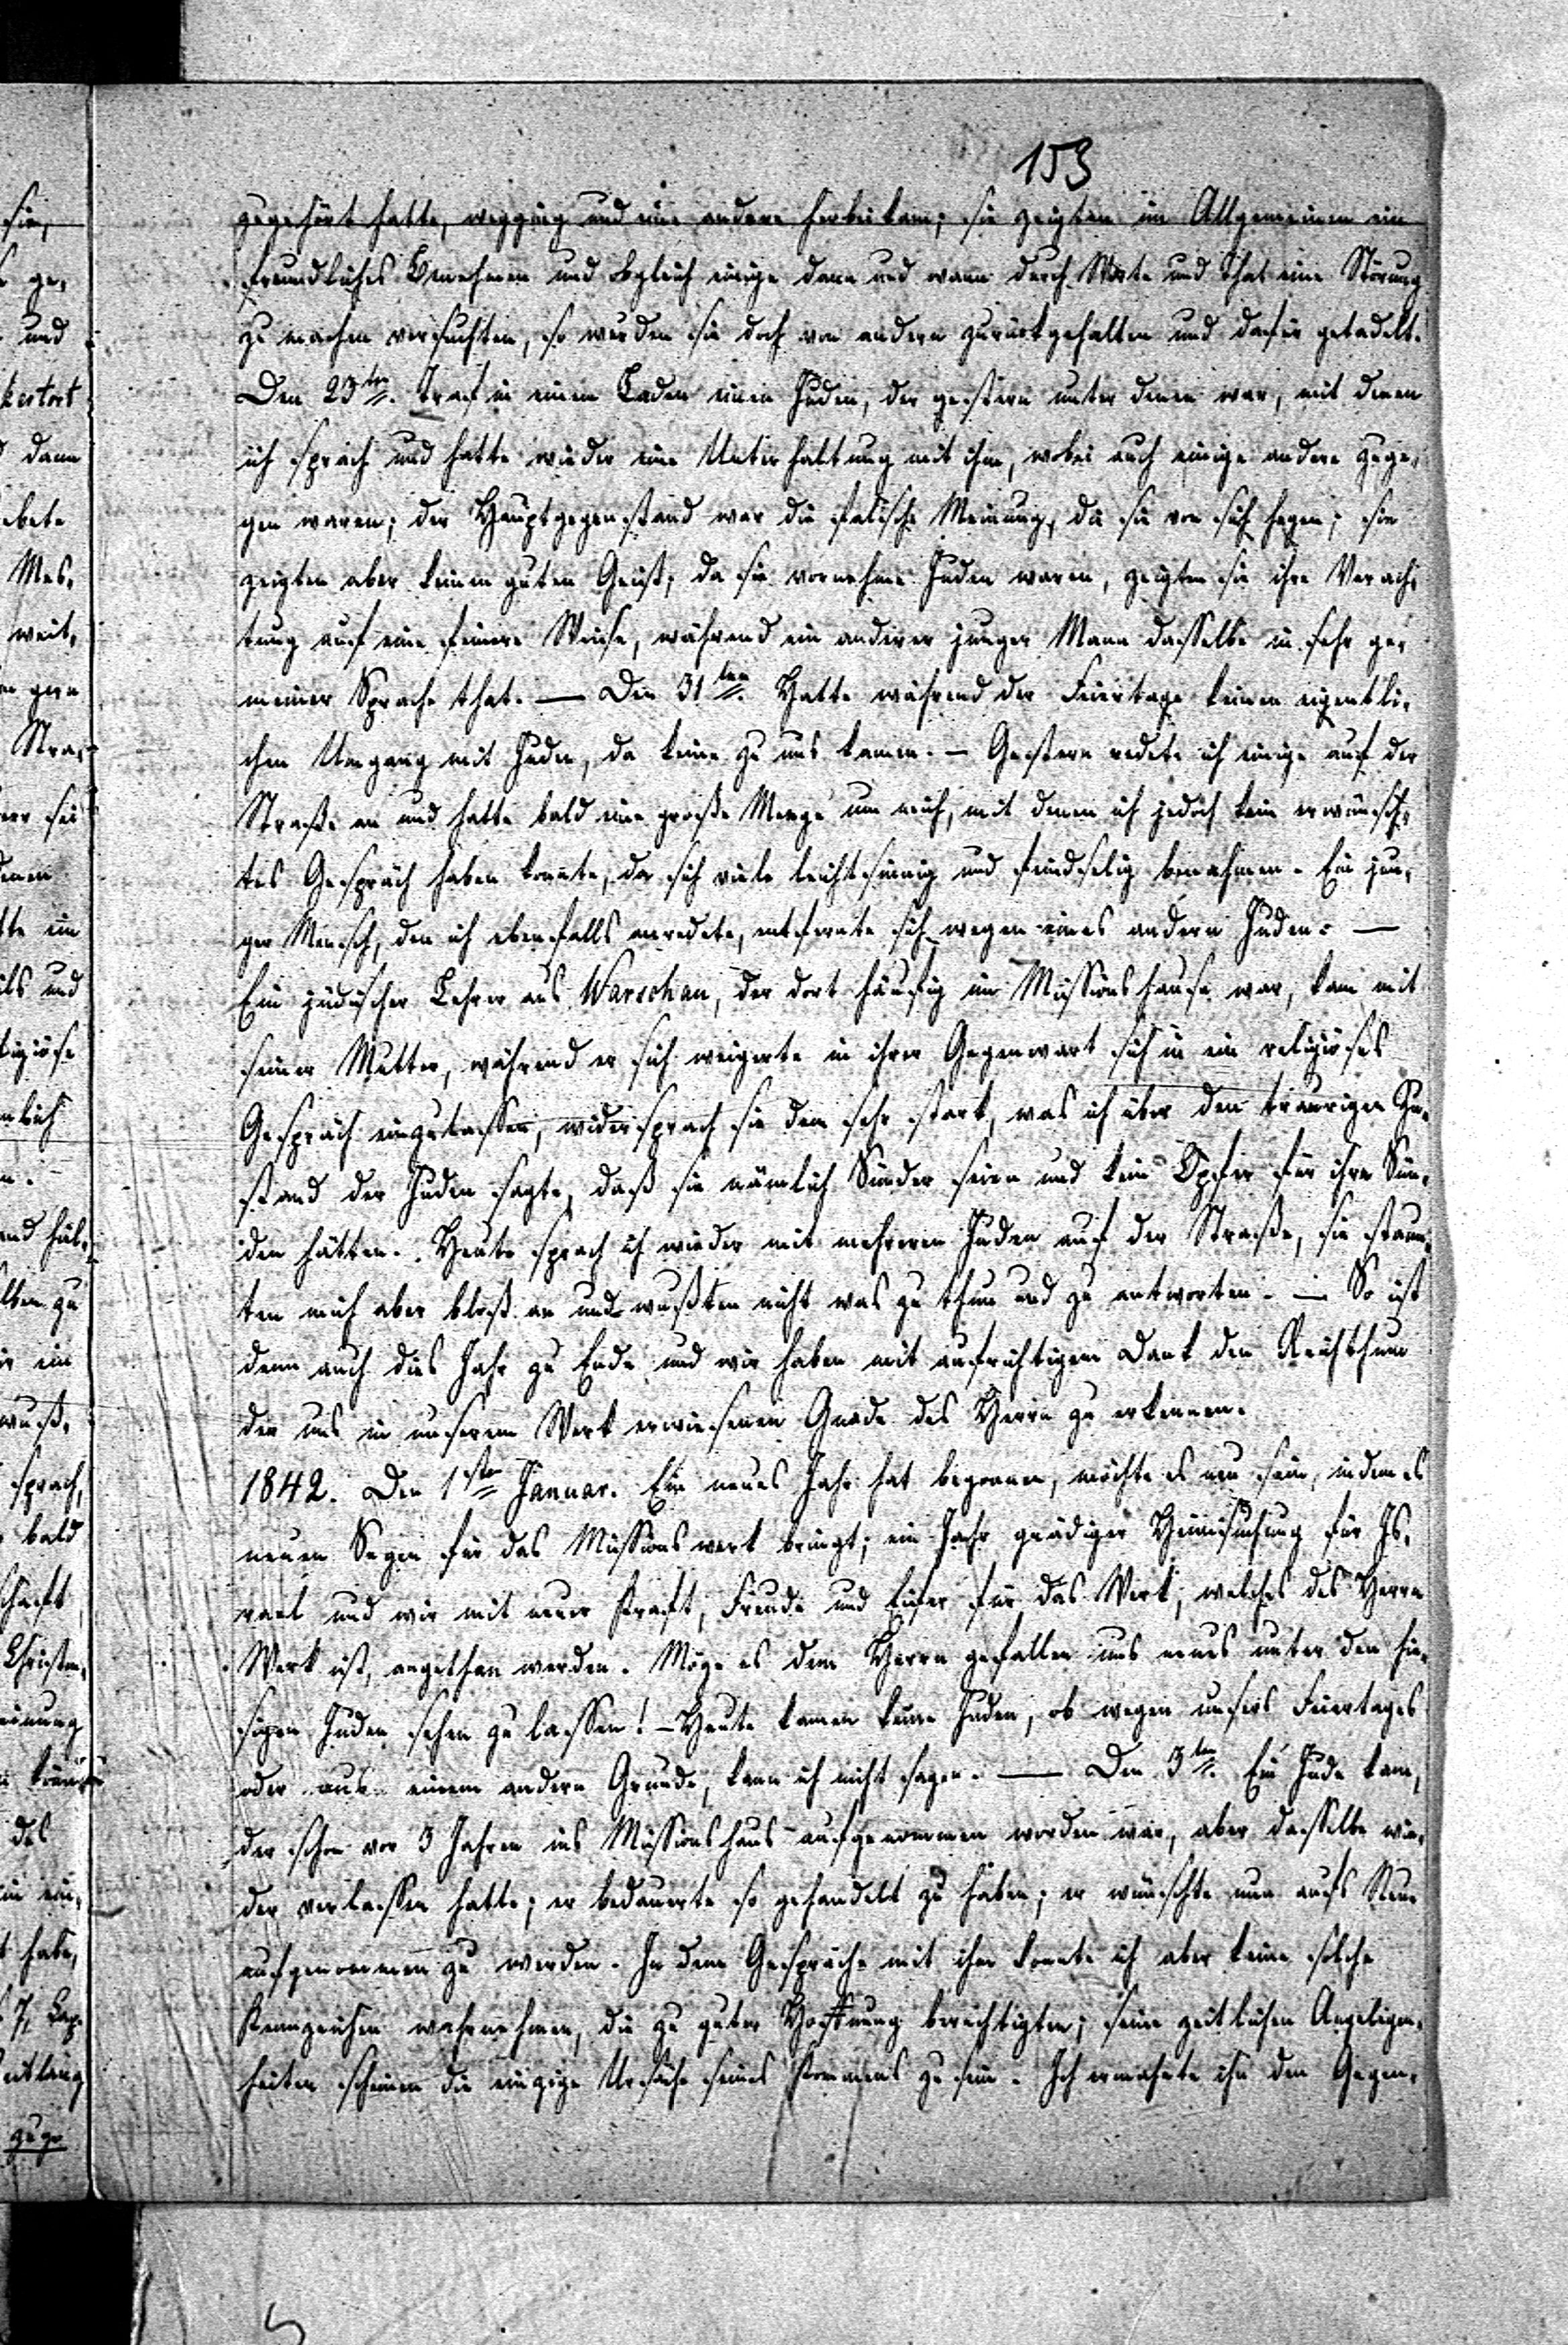 153
zugehört hatte, wegging und eine andere herbeikam; sie zeigten im Allgemeinen ein
freundliches Benehmen und obgleich einige dann und wann durch Worte und That eine Störung
zu machen versuchten, so wurden sie doch von andern zurückgehalten und dafür getadelt.
Den 23ten. Traf in einem Laden einen Juden, der gestern unter denen war, mit denen
ich sprach und hatte wieder eine Unterhaltung mit ihm, wobei auch einige andere zuge-
gen waren; der Hauptgegenstand war die falsche Meinung, die sie von sich hegen; sie
zeigten aber keinen guten Geist; da sie vornehme Juden waren, zeigten sie ihre Verach-
tung auf eine feinere Weise, während ein anderer junger Mann dasselbe in sehr ge-
meiner Sprache that. — Den 31ten. Hatte während der Feiertage keinen eigentli-
chen Umgang mit Juden, da keine zu uns kamen. — Gestern redete ich einige auf der
Straße an und hatte bald eine große Menge um mich, mit denen ich jedoch kein erwünsch-
tes Gespräch haben konnte, da sich viele leichtsinnig und feindselig benahmen. Ein jun-
ger Mensch, den ich ebenfalls anredete, entfernte sich wegen eines andern Juden. —
Ein jüdischer Lehrer aus Warschau, der dort häufig im Missionshause war, kam mit
seiner Mutter, während er sich weigerte in ihrer Gegenwart sich in ein religiöses
Gespräch einzulassen, widersprach sie dem sehr stark, was ich über den traurigen Zu-
stand der Juden sagte, daß sie nämlich Sünder seien und kein Opfer für ihre Sün-
den hätten. Heute sprach ich wieder mit mehreren Juden auf der Straße, sie staun-
ten mich aber bloß an und wußten nicht was zu thun und zu antworten. — So ist
denn auch dies Jahr zu Ende und wir haben mit aufrichtigem Dank den Reichthum
der uns in unserem Werk erwiesenen Gnade des Herrn zu erkennen.
1842. Den 1sten Januar. Ein neues Jahr hat begonnen, möchte es neu sein, indem es
neuen Segen für das Missionswerk bringt; ein Jahr gnädiger Heimsuchung für Is-
rael und wir mit neuer Kraft, Freude und Eifer für das Werk, welches des Herrn
Werk ist, angethan werden. Möge es dem Herrn gefallen uns neues unter den hie-
sigen Juden sehen zu lassen! — Heute kamen keine Juden, ob wegen unsers Feiertages
oder aus einem andern Grunde, kann ich nicht sagen. — Den 3ten. Ein Jude kam,
der schon vor 3 Jahren ins Missionshaus aufgenommen worden war, aber dasselbe wie-
der verlassen hatte; er bedauerte so gehandelt zu haben; er wünschte nun aufs Neue
aufgenommen zu werden. In dem Gespräche mit ihm konnte ich aber keine solche
Kennzeichen wahrnehmen, die zu guter Hoffnung berechtigten; seine zeitlichen Angelegen-
heiten scheinen die einzige Ursache seines Kommens zu sein. Ich ermahnte ihn den Gegen-